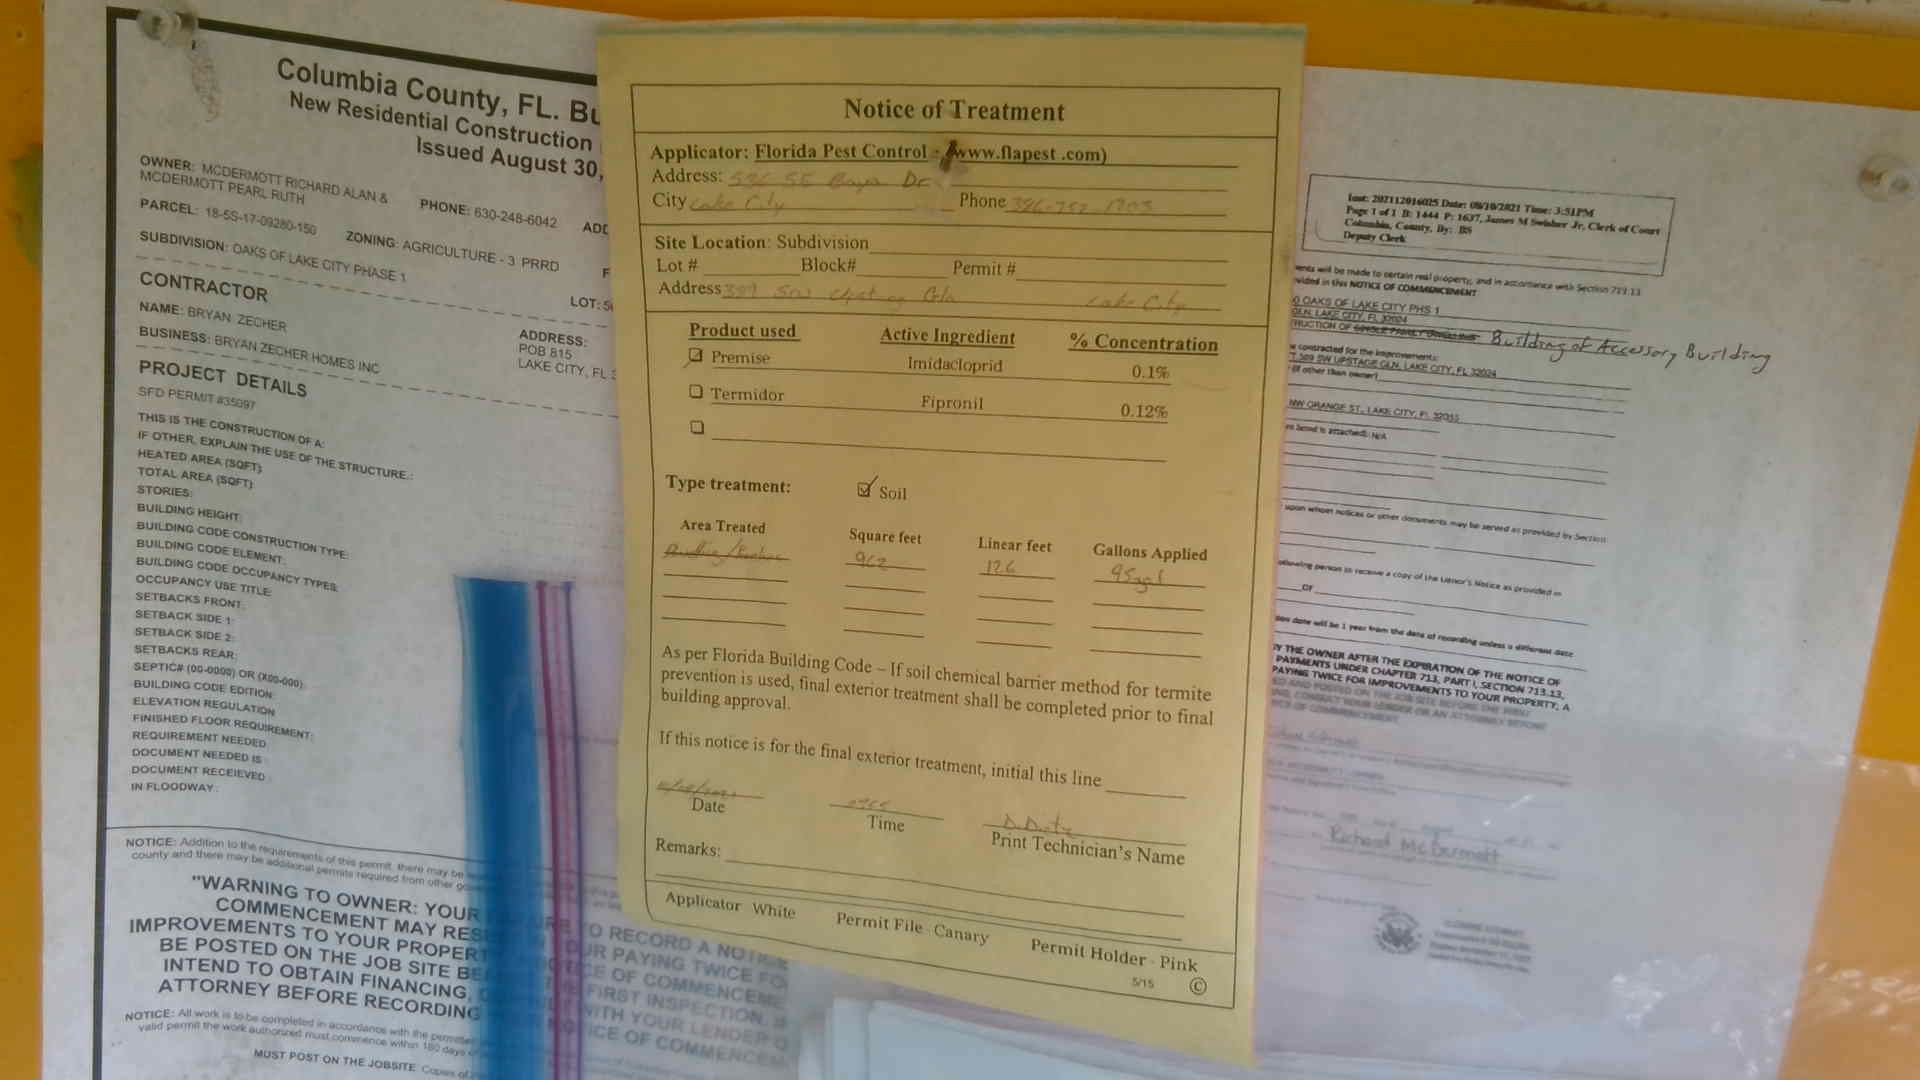 Columbia County, FL. Bu
New Residential Construction
Issued August 30,
OWNER: MCDERMOTT RICHARD ALAN &
MCDERMOTT PEARL RUTH
PHONE: 630-248-6042
ADD
PARCEL: 18-5S-17-09280-150
ZONING: AGRICULTURE - 3 PRRD
F
SUBDIVISION: OAKS OF LAKE CITY PHASE 1
LOT: 5
CONTRACTOR
NAME: BRYAN ZECHER
BUSINESS: BRYAN ZECHER HOMES INC
ADDRESS:
POB 815
LAKE CITY, FL
PROJECT DETAILS
SFD PERMIT #35097
THIS IS THE CONSTRUCTION OF A:
IF OTHER, EXPLAIN THE USE OF THE STRUCTURE.:
HEATED AREA (SQFT)
TOTAL AREA (SQFT)
STORIES:
BUILDING HEIGHT:
BUILDING CODE CONSTRUCTION TYPE:
BUILDING CODE ELEMENT:
BUILDING CODE OCCUPANCY TYPES:
OCCUPANCY USE TITLE:
SETBACKS FRONT:
SETBACK SIDE 1:
SETBACK SIDE 2:
SETBACKS REAR:
SEPTIC# (00-0000) OR (X00-000):
BUILDING CODE EDITION:
ELEVATION REGULATION
FINISHED FLOOR REQUIREMENT:
REQUIREMENT NEEDED
DOCUMENT NEEDED IS :
DOCUMENT RECEIEVED :
IN FLOODWAY :
NOTICE: Addition to the requirements of this permit, there may be
county and there may be additional permits required from other go
"WARNING TO OWNER: YOUR FAILURE TO RECORD A NOTICE
COMMENCEMENT MAY RES OUR PAYING TWICE FO
IMPROVEMENTS TO YOUR PROPERT CE OF COMMENCEME
BE POSTED ON THE JOB SITE BE THE FIRST INSPECTION.
INTEND TO OBTAIN FINANCING, WITH YOUR LENDER O
ATTORNEY BEFORE RECORDING ICE OF COMMENCEM
NOTICE: All work is to be completed in accordance with the permitted
valid permit the work authorized must commence within 180 days
MUST POST ON THE JOBSITE Copies of
Notice of Treatment
Applicator: Florida Pest Control - (www.flapest .com)
Address: 536 SE Baya Dr
City Lake City Phone 386-752-1703
Site Location: Subdivision
Lot # Block# Permit #
Address 389 SW Gln Lake City
Product used Active Ingredient % Concentration
Premise Imidacloprid 0.1%
Termidor Fipronil 0.12%
Type treatment: Soil
Area Treated Square feet Linear feet Gallons Applied
962 126 95gal
As per Florida Building Code – If soil chemical barrier method for termite
prevention is used, final exterior treatment shall be completed prior to final
building approval.
If this notice is for the final exterior treatment, initial this line
Date Time Print Technician's Name
Remarks:
Applicator - White Permit File - Canary Permit Holder - Pink
5/15 ©
Inst: 202112016025 Date: 08/10/2021 Time: 3:51PM
Page 1 of 1 B: 1444 P: 1637, James M Swisher Jr, Clerk of Court
Columbia, County, By: BS
Deputy Clerk
ents will be made to certain real property, and in accordance with Section 713.13
vided in this NOTICE OF COMMENCEMENT
OAKS OF LAKE CITY PHS 1
GLN, LAKE CITY, FL 32024
RUCTION OF SINGLE FAMILY DWELLING Building of Accessory Building
contracted for the improvements:
T 389 SW UPSTAGE GLN, LAKE CITY, FL 32024
(if other than owner)
NW ORANGE ST., LAKE CITY, FL 32055
bond is attached): N/A
upon whom notices or other documents may be served as provided by Section
following person to receive a copy of the Lienor's Notice as provided in
OF
date will be 1 year from the date of recording unless a different date
BY THE OWNER AFTER THE EXPIRATION OF THE NOTICE OF
PAYMENTS UNDER CHAPTER 713, PART I, SECTION 713.13,
PAYING TWICE FOR IMPROVEMENTS TO YOUR PROPERTY; A
ED AND POSTED ON THE JOB SITE BEFORE THE FIRST
CONSULT YOUR LENDER OR AN ATTORNEY BEFORE
CE OF COMMENCEMENT.
Richard McDermott